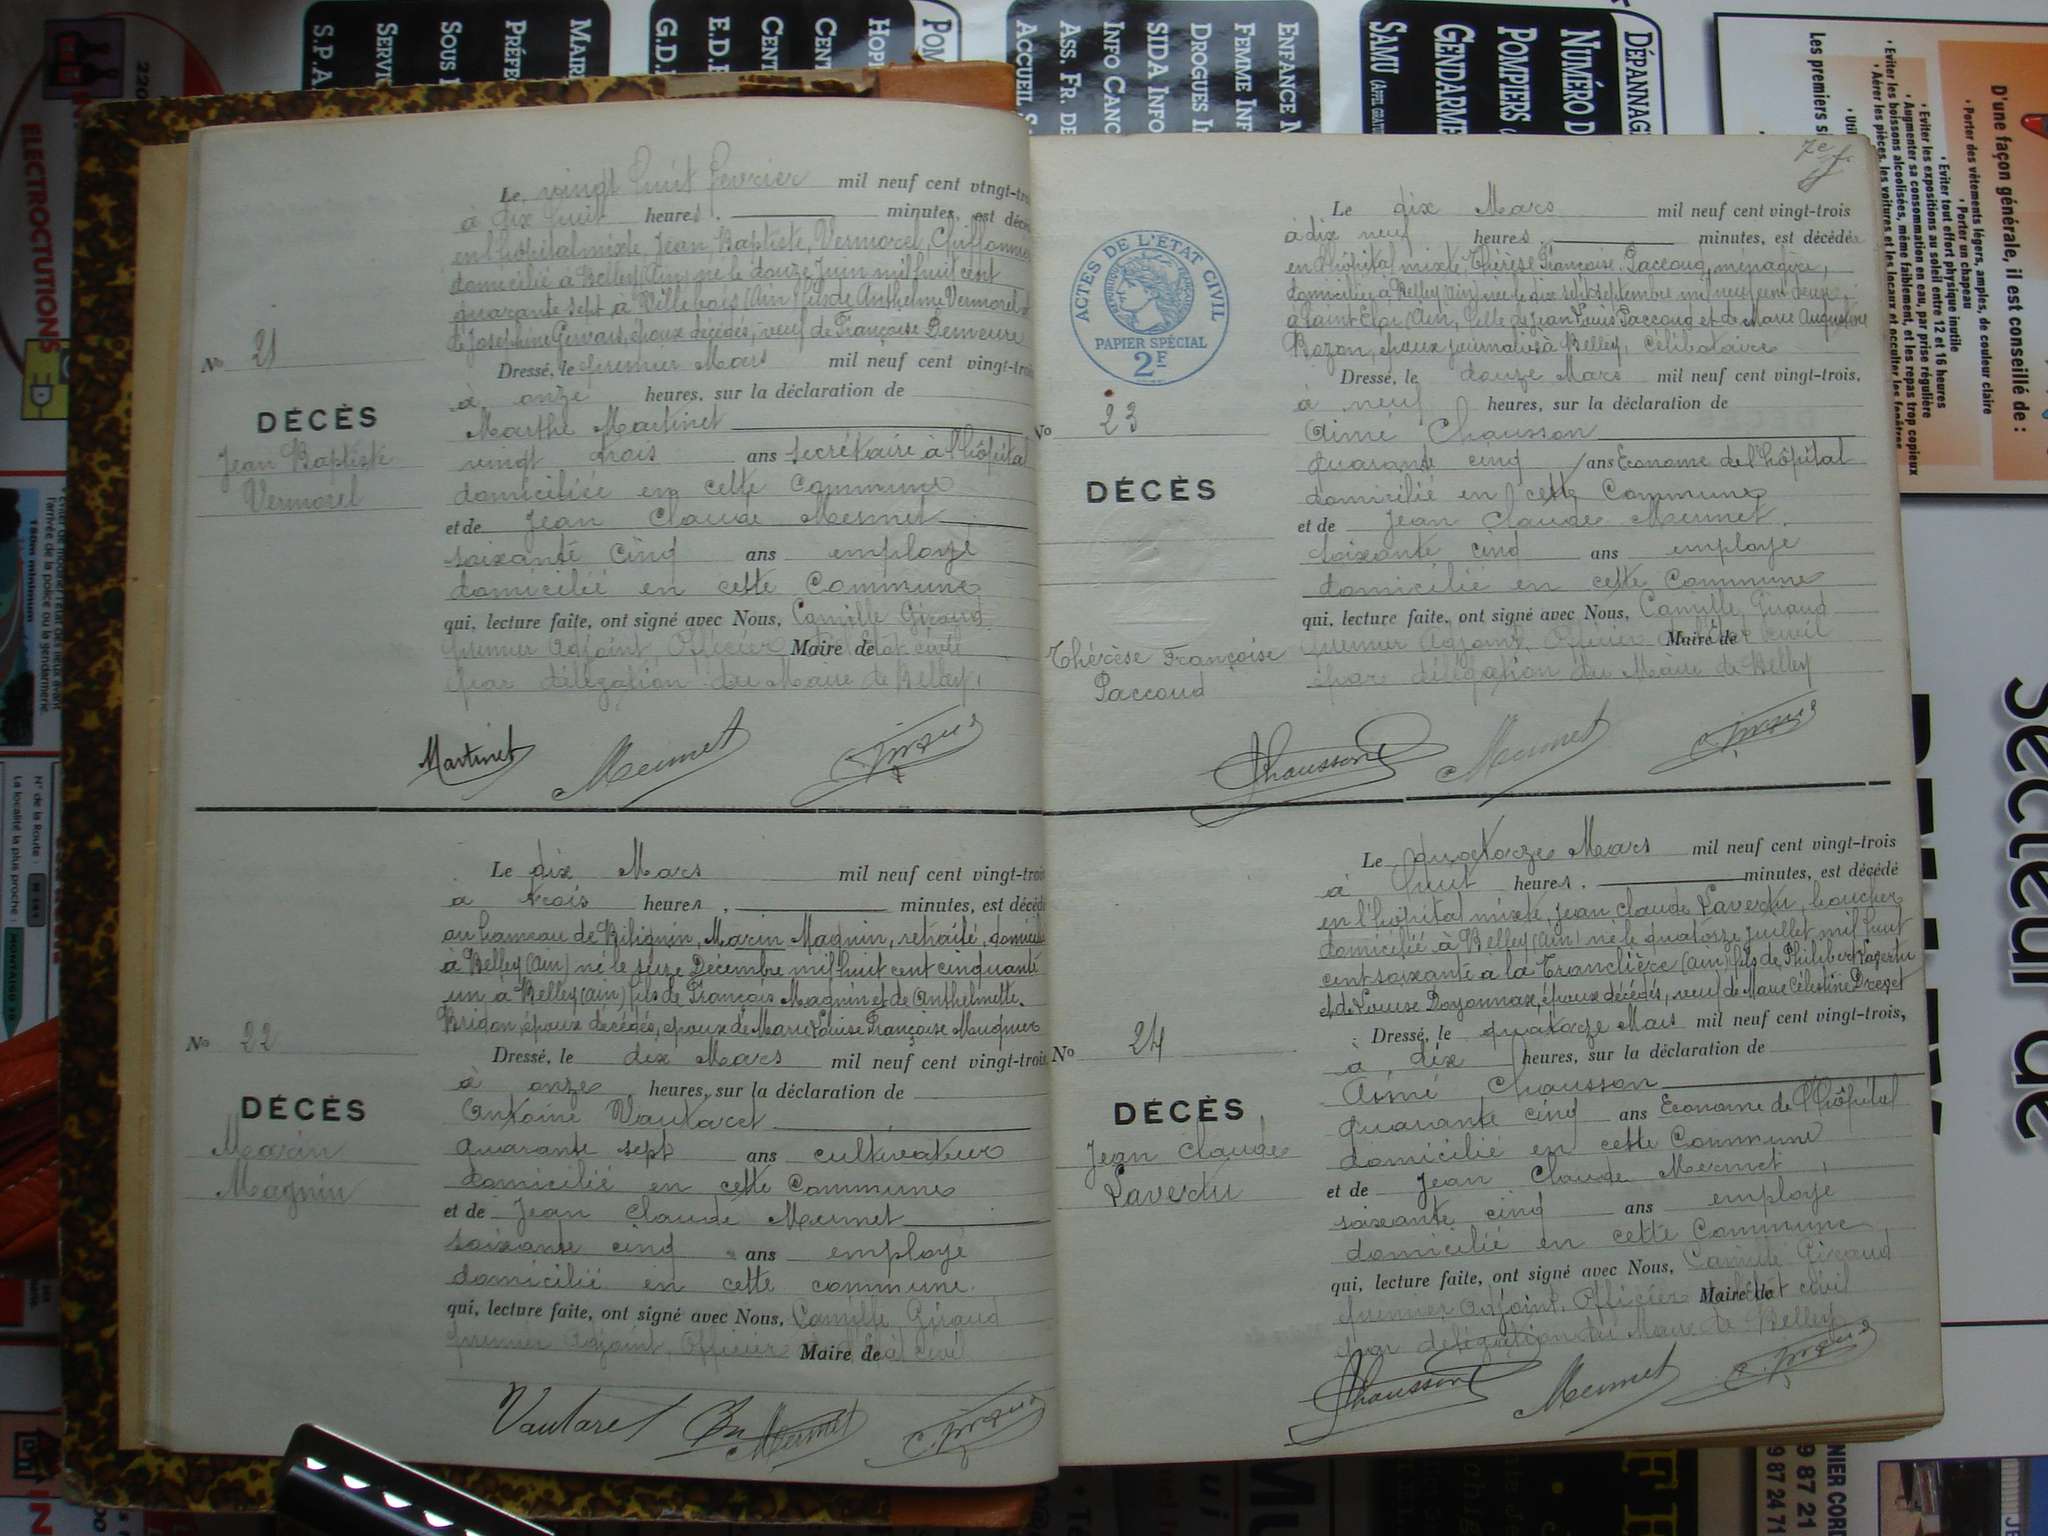 Le vingt huit fevrier mil neuf cent vingt-trois
à dix huit heures, minutes, est décédé
en l'hôpital mixte, Jean Baptiste, Vermorel, Chiffonnier
domicilié à Belley (Ain) né le douze Juin mil huit cent
quarante sept à Villebois (Ain) fils de Anthelme Vermorel et
de Joséphine Gervais, époux décédés, veuf de Françoise Demeure
No 21
Dressé, le premier Mars mil neuf cent vingt-trois
à onze heures, sur la déclaration de
DÉCÈS
Jean Baptiste
Vermorel
Marthe Martinet
vingt trois ans secrétaire à l'hôpital
domiciliée en cette Commune
et de Jean Claude Mermet
soixante cinq ans employé
domicilié en cette Commune
qui, lecture faite, ont signé avec Nous, Camille Giraud
premier Adjoint Officier Maire de l'Etat civil
par délégation du Maire de Belley,
Martinet Mermet C. Giraud
Le dix Mars mil neuf cent vingt-trois
à trois heures, minutes, est décédé
au hameau de Bilignin, Marin Magnin, retraité, domicilié
à Belley (Ain) né le seize Décembre mil huit cent cinquante
un à Belley (Ain) fils de François Magnin et de Anthelmette
Brigon, époux décédés, époux de Marie Louise Françoise Mugnier
No 22
Dressé, le dix Mars mil neuf cent vingt-trois
à onze heures, sur la déclaration de
DÉCÈS
Marin
Magnin
Antoine Vautaret
quarante sept ans cultivateur
domicilié en cette Commune
et de Jean Claude Mermet
soixante cinq ans employé
domicilié en cette commune.
qui, lecture faite, ont signé avec Nous, Camille Giraud
premier Adjoint, Officier Maire de l'état civil
Vautaret Mermet C. Giraud
7e f.
ACTES DE L'ÉTAT CIVIL
RÉPUBLIQUE FRANÇAISE
PAPIER SPÉCIAL
2F
Le dix Mars mil neuf cent vingt-trois
à dix neuf heures, minutes, est décédée
en l'hôpital mixte, Thérèse Françoise Paccoud, ménagère,
domiciliée à Belley (Ain) née le dix sept septembre mil neuf cent deux
à Saint Eloi (Ain, fille de Jean Louis Paccoud et de Marie Augustine
Bozon, époux journaliers à Belley, Célibataire
No 23
Dressé, le douze Mars mil neuf cent vingt-trois,
à neuf heures, sur la déclaration de
DÉCÈS
Thérèse Françoise
Paccoud
Aimé Chausson
quarante cinq ans Econome de l'hôpital
domicilié en cette Commune
et de Jean Claude Mermet.
soixante cinq ans employé
domicilié en cette Commune
qui, lecture faite, ont signé avec Nous, Camille Giraud
premier Adjoint, Officier Maire de l'Etat civil
par délégation du Maire de Belley
Chausson Mermet C. Giraud
Le quatorze Mars mil neuf cent vingt-trois
à huit heures, minutes, est décédé
en l'hôpital mixte, Jean Claude Lavertu, boucher
domicilié à Belley (Ain) né le quatorze juillet mil huit
cent soixante à la Tranclière (Ain) fils de Philibert Lavertu
et de Louise Doyonnax, époux décédés, veuf de Marie Célestine Drevet
No 24
Dressé, le quatorze Mars mil neuf cent vingt-trois,
à dix heures, sur la déclaration de
DÉCÈS
Jean Claude
Lavertu
Aimé Chausson
quarante cinq ans Econome de l'hôpital
domicilié en cette Commune
et de Jean Claude Mermet,
soixante cinq ans employé
domicilié en cette Commune
qui, lecture faite, ont signé avec Nous, Camille Giraud
premier Adjoint, Officier Maire de l'Etat civil
par délégation du Maire de Belley
Chausson Mermet C. Giraud
ELECTROCUTIONS
S.P.A
SERVI
SOUS
PRÉFE
MAIRI
G.D.
E.D.F
CENT
CENT
HOPI
POM
ACCUEIL S
ASS. FR. DE
INFO CANC
SIDA INFO
DROGUES I
FEMME INF
ENFANCE M
SAMU
GENDARME
POMPIERS
NUMÉRO D
DÉPANNAG
Les premiers si
D'une façon générale, il est conseillé de :
• Porter des vêtements légers, amples, de couleur claire
• Porter un chapeau
• Eviter tout effort physique inutile
• Eviter les expositions au soleil entre 12 et 16 heures
• Augmenter sa consommation en eau, par prise régulière
• Eviter les boissons alcoolisées, même faiblement, et les repas trop copieux
Secteur de